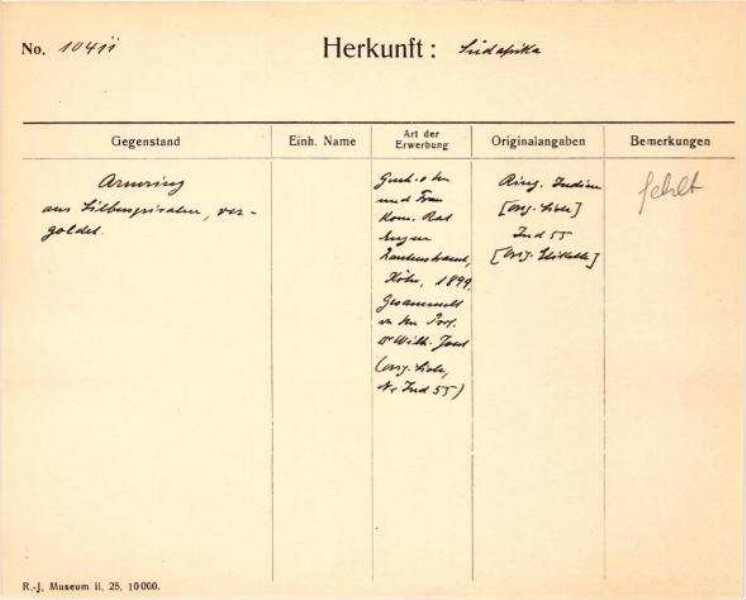 No. 10411
Herkunft: Südafrika
Gegenstand
Einh. Name
Art der
Erwerbung
Originalangaben
Bemerkungen
Armring
aus Silberspiralen, ver-
goldet.
Gesch. v. Hn
und Frau
Kom. Rat
Eugen
Rautenstrauch,
Köln, 1899.
Gesammelt
von Hn Prof.
Dr Wilh. Joest
(Orig. Liste,
Nr Ind 55)
Ring. Indien
[Orig. Liste]
Ind 55
[Orig. Etikette]
fehlt
R.-J. Museum II. 25. 10000.